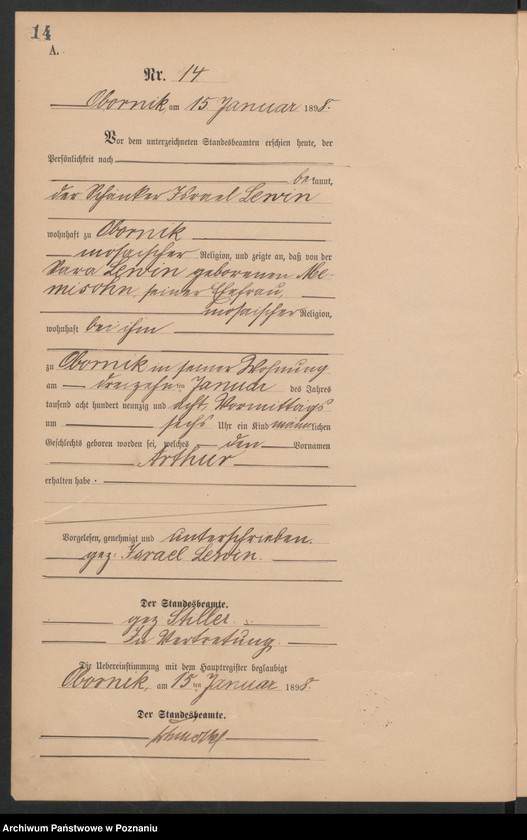 14
A.
Nr. 14
Obornik, am 15 Januar 1898.
Vor dem unterzeichneten Standesbeamten erschien heute, der
Persönlichkeit nach
bekannt,
der Schänker Israel Lewin
wohnhaft zu Obornik
mosaischer Religion, und zeigte an, daß von der
Sara Lewin geborenen
seiner Ehefrau,
mosaischer Religion,
wohnhaft bei ihm
zu Obornik in seiner Wohnung
am dreizehn ten Januar des Jahres
tausend acht hundert neunzig und acht, Vormittags
um sechs Uhr ein Kind männlichen
Geschlechts geboren worden sei, welches den Vornamen
Arthur
erhalten habe.
Vorgelesen, genehmigt und unterschrieben.
gez. Israel Lewin.
Der Standesbeamte.
gez Stiller.
In Vertretung.
Die Uebereinstimmung mit dem Hauptregister beglaubigt
Obornik, am 15 ten Januar 1898.
Der Standesbeamte.
Archiwum Państwowe w Poznaniu